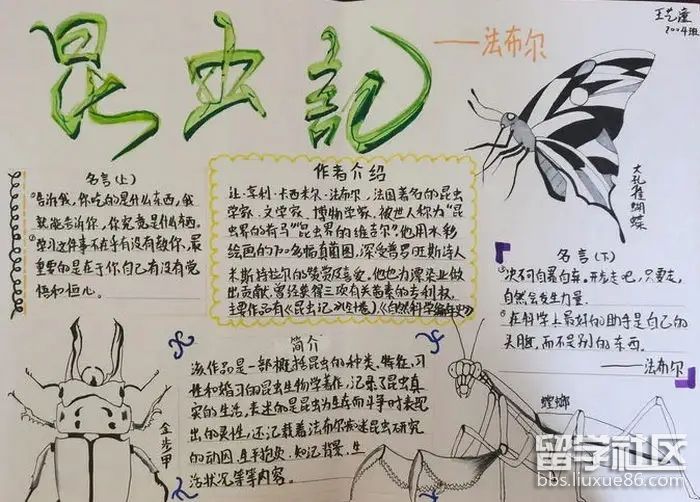 昆虫記
——法布尔
王艺潼
2004班
名言(上)
告诉我,你吃的是什么东西,我
就能告诉你,你究竟是什么东西。
学习这件事不在乎有没有人教你,最
重要的是在于你自己有没有觉
悟和恒心。
作者介绍
让·亨利·卡西米尔·法布尔,法国著名的昆虫
学家、文学家、博物学家,被世人称为“昆
虫界的荷马”“昆虫界的维吉尔”他用水彩
绘画的700多幅真菌图,深受普罗旺斯诗人
米斯特拉尔的赞赏及喜爱,他也为漂染业做
出贡献,曾经获得三项有关茜素的专利权,
主要作品有《昆虫记》《自然科学编年史》
大孔雀蝴蝶
名言(下)
决不自暴自弃。开始走吧,只要走,
自然会产生力量.
在科学上最好的助手是自己的
头脑,而不是别的东西.
——法布尔
简介
该作品是一部概括昆虫的种类、特征、习
性和婚习的昆虫生物学著作,记录了昆虫真
实的生活,表述的是昆虫为生存而斗争时表现
出的灵性,还记载着法布尔痴迷昆虫研究
的动因、生平抱负、知识背景、生
活状况等等内容.
金步甲
螳螂
留学社区
bbs.liuxue86.com